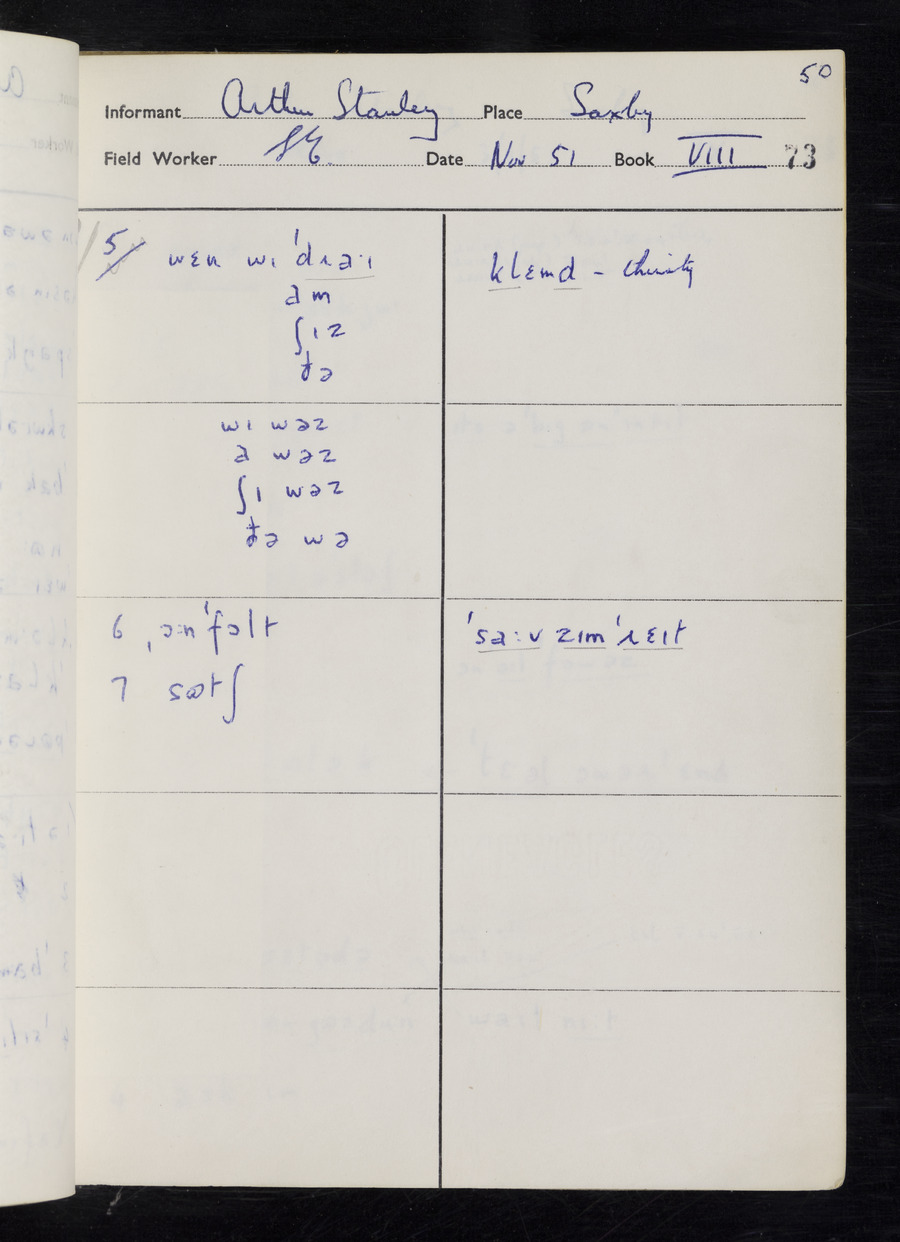 50
Informant Arthur Stanley Place Saxby
Field Worker SE Date Nov 51 Book VIII 73
5/ wɛn wɩ ˈdɹaːɩ
a m
ʃɩz
ðə
klɛmd - thirsty
wɩ wəz
a wəz
ʃɩ wəz
ðə wə
6 ˌɔːnˈfɔlt
ˈsaːv zɩmˈɹɛɪt
7 sɷtʃ